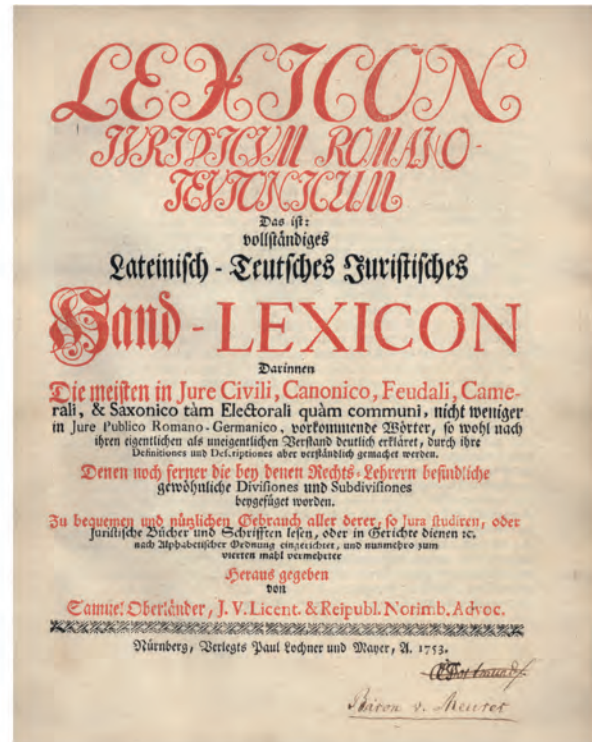 LEXICON
IVRIDICVM ROMANO-
TEVTONICUM
Das ist:
vollständiges
Lateinisch-Teutsches Juristisches
Hand-LEXICON
Darinnen
Die meisten in Jure Civili, Canonico, Feudali, Came-
rali, & Saxonico tàm Electorali quàm communi, nicht weniger
in Jure Publico Romano-Germanico, vorkommende Wörter, so wohl nach
ihren eigentlichen als uneigentlichen Verstand deutlich erkläret, durch ihre
Definitiones und Descriptiones aber verständlich gemachet werden.
Denen noch ferner die bey denen Rechts-Lehrern befindliche
gewöhnliche Divisiones und Subdivisiones
beygefüget worden.
Zu bequemen und nützlichen Gebrauch aller derer, so Jura studiren, oder
Juristische Bücher und Schrifften lesen, oder in Gerichte dienen ꝛc.
nach Alphabetischer Ordnung eingerichtet, und nunmehro zum
vierten mahl vermehrter
Heraus gegeben
von
Samuel Oberländer, J. V. Licent. & Reipubl. Norimb. Advoc.
Nürnberg, Verlegts Paul Lochner und Mayer, A. 1753.
Baron v. Meurer